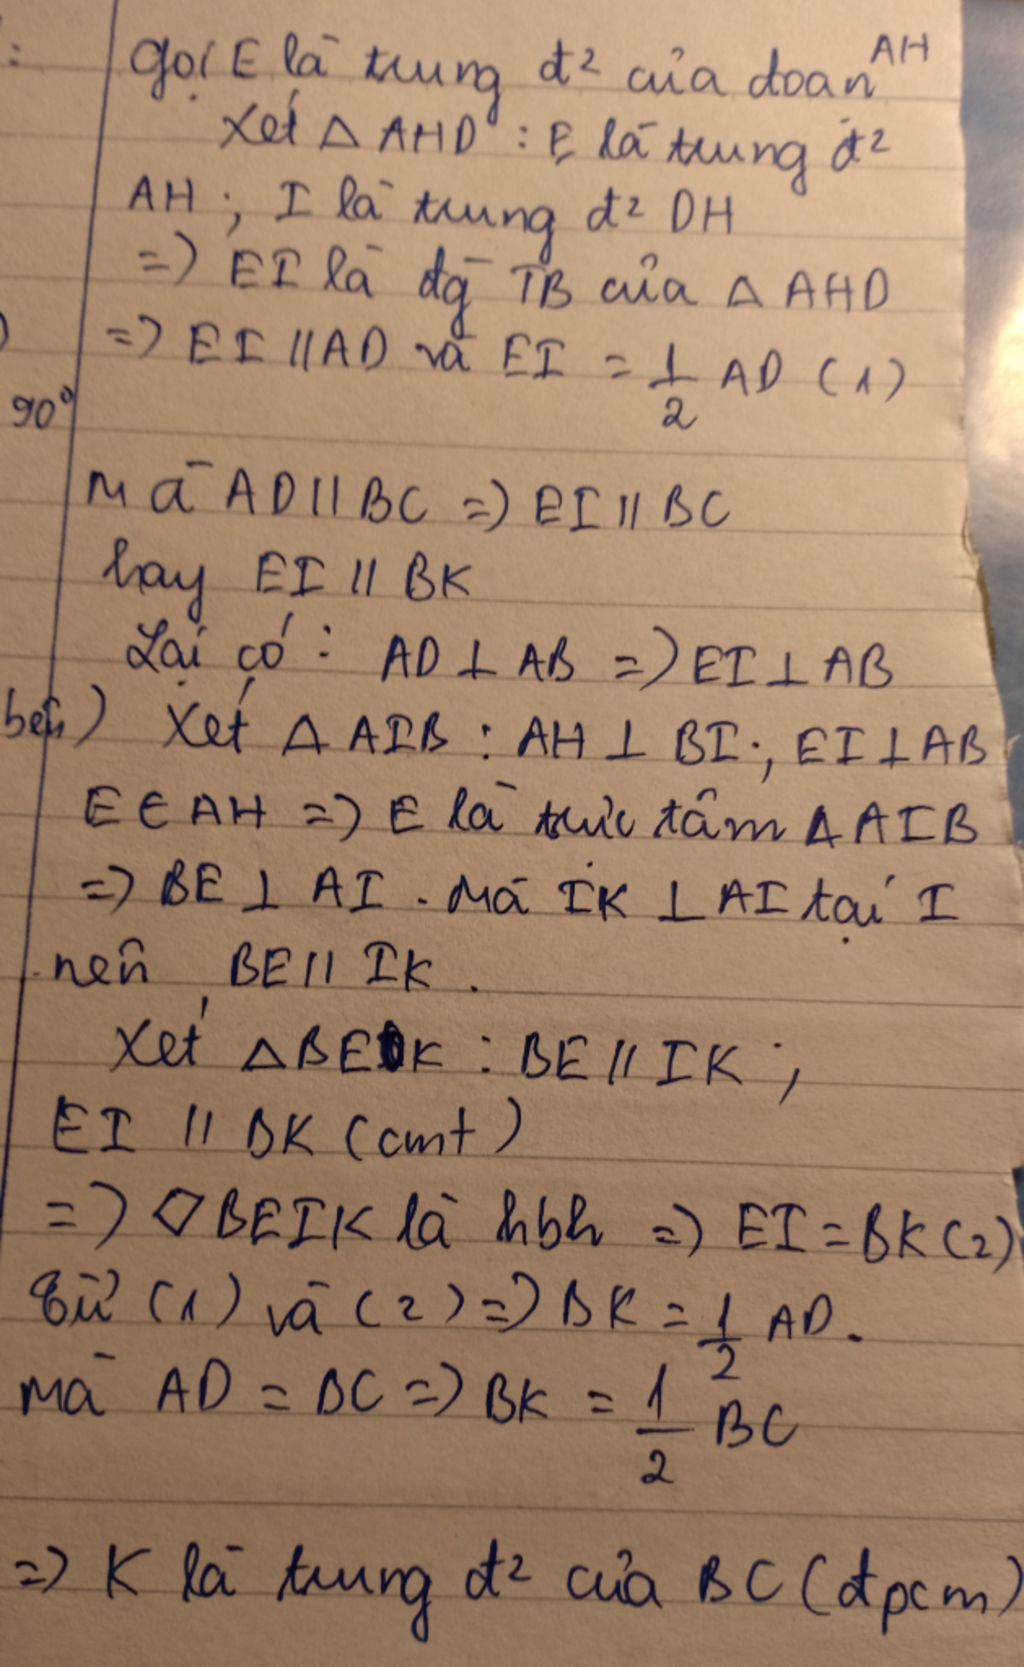 :
Gọi E là trung đ² của đoạn AH
Xét △ AHD : E là trung đ²
AH ; I là trung đ² DH
=> EI là đg TB của △ AHD
=> EI // AD và EI = 1/2 AD (1)
90°
Mà AD // BC => EI // BC
hay EI // BK
Lại có : AD ⊥ AB => EI ⊥ AB
bên) Xét △ AIB : AH ⊥ BI ; EI ⊥ AB
E ∈ AH => E là trực tâm △ AIB
=> BE ⊥ AI . Mà IK ⊥ AI tại I
nên BE // IK .
Xét △ BEIK : BE // IK ;
EI // BK (cmt)
=> ▱ BEIK là hbh => EI = BK (2)
Từ (1) và (2) => BK = 1/2 AD .
Mà AD = BC => BK = 1/2 BC
=> K là trung đ² của BC (đpcm)